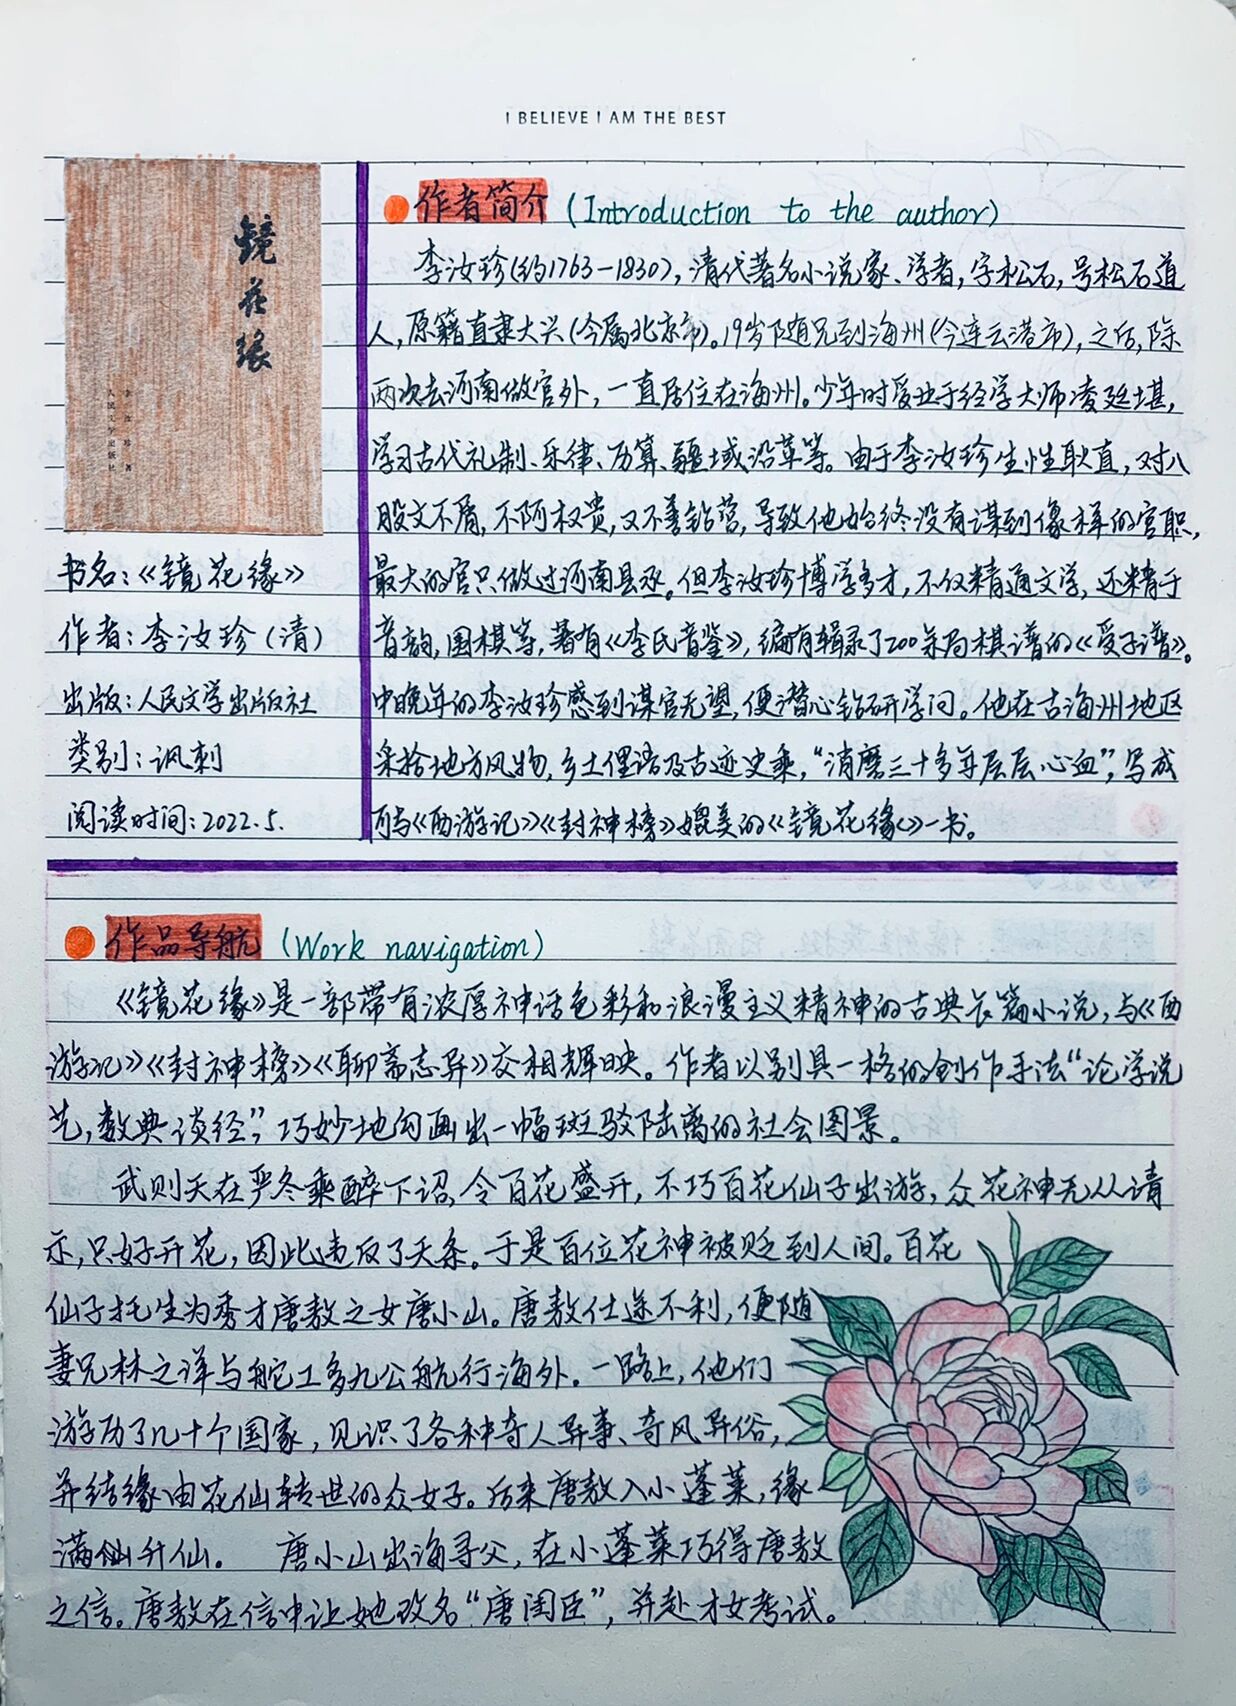 I BELIEVE I AM THE BEST
镜花缘
李汝珍 著
人民文学出版社
书名:《镜花缘》
作者:李汝珍(清)
出版:人民文学出版社
类别:讽刺
阅读时间:2022.5.
作者简介(Introduction to the author)
李汝珍(约1763-1830),清代著名小说家、学者,字松石,号松石道
人,原籍直隶大兴(今属北京市)。19岁随兄到海州(今连云港市),之后,除
两次去河南做官外,一直居住在海州。少年时受业于经学大师凌廷堪,
学习古代礼制、乐律、历算、疆域沿革等。由于李汝珍生性耿直,对八
股文不屑,不阿权贵,又不善钻营,导致他始终没有谋到像样的官职,
最大的官只做过河南县丞。但李汝珍博学多才,不仅精通文学,还精于
音韵,围棋等,著有《李氏音鉴》,编有辑录了200余局棋谱的《受子谱》。
中晚年的李汝珍感到谋官无望,便潜心钻研学问。他在古海州地区
采拾地方风物,乡土俚语及古迹史乘,“消磨三十多年层层心血”,写成
可与《西游记》《封神榜》媲美的《镜花缘》一书。
作品导航(Work navigation)
《镜花缘》是一部带有浓厚神话色彩和浪漫主义精神的古典长篇小说,与《西
游记》《封神榜》《聊斋志异》交相辉映。作者以别具一格的创作手法“论学说
艺,数典谈经”,巧妙地勾画出一幅斑驳陆离的社会图景。
武则天在严冬乘醉下诏,令百花盛开,不巧百花仙子出游,众花神无从请
示,只好开花,因此违反了天条。于是百位花神被贬到人间。百花
仙子托生为秀才唐敖之女唐小山。唐敖仕途不利,便随
妻兄林之洋与舵工多九公航行海外。一路上,他们
游历了几十个国家,见识了各种奇人异事、奇风异俗,
并结缘由花仙转世的众女子。后来唐敖入小蓬莱,缘
满仙升仙。 唐小山出海寻父,在小蓬莱巧得唐敖
之信。唐敖在信中让她改名“唐闺臣”,并赴才女考试。